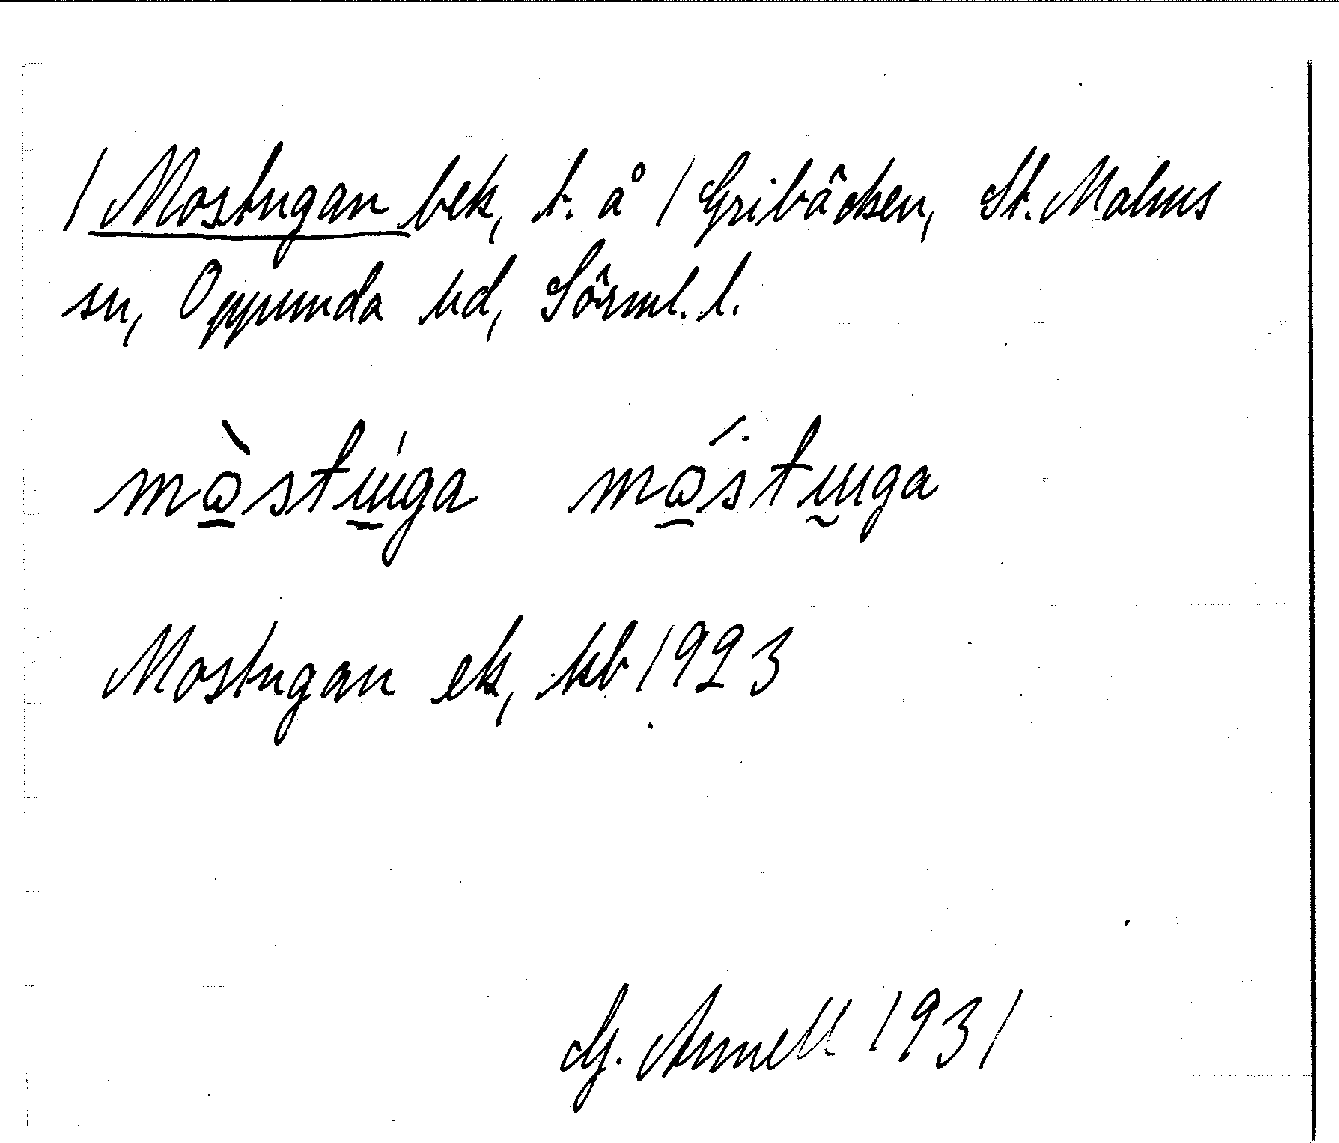 / Mostugan bek, t. å / Gribäcken, St. Malms
sn, Oppunda hd, Sörml. l.
mo̠̊̀stu̠̍ga mo̠̊́stu̠ga
Mostugan ek, kb 1923
G. Annell 1931